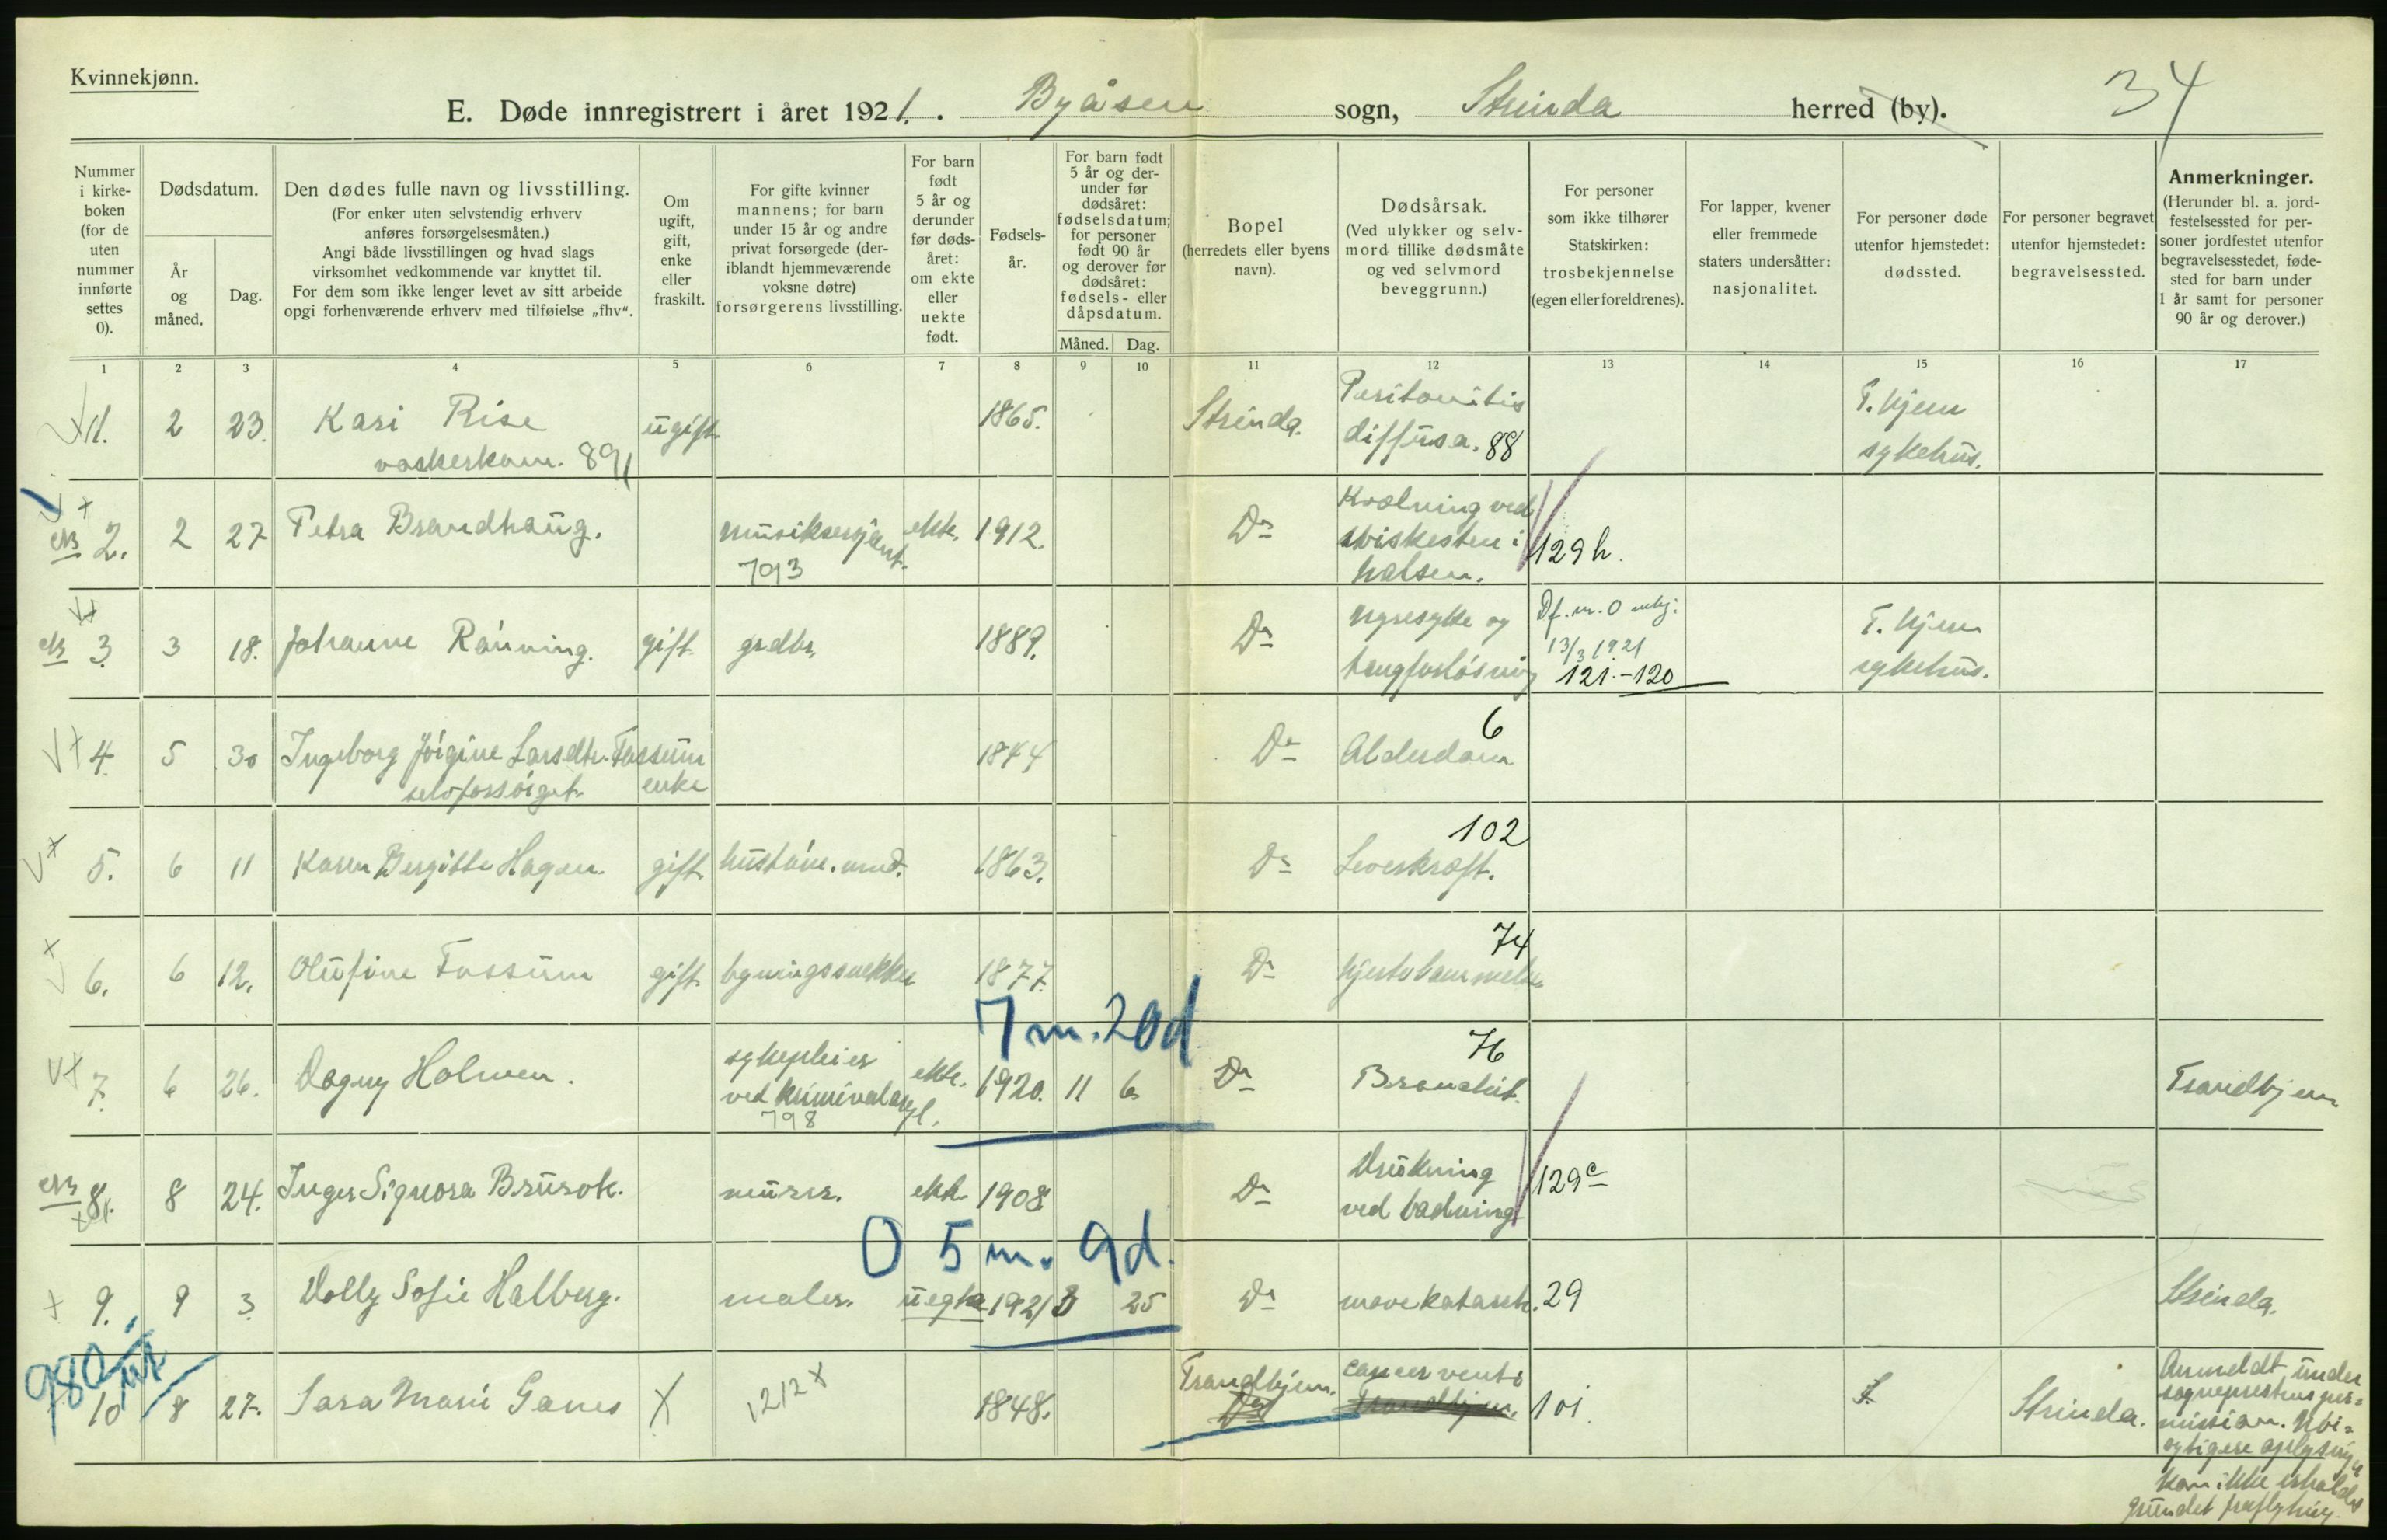 Kvinnekjønn.
E. Døde innregistrert i året 1921. Byåsen sogn, Strinda herred (by). 34
Nummer i kirke- boken (for de uten nummer innførte settes 0).
Dødsdatum.
År og måned.
Dag.
Den dødes fulle navn og livsstilling.
(For enker uten selvstendig erhverv
anføres forsørgelsesmåten.)
Angi både livsstillingen og hvad slags
virksomhet vedkommende var knyttet til.
For dem som ikke lenger levet av sitt arbeide
opgi forhenværende erhverv med tilføielse „fhv“.
Om ugift, gift, enke eller fraskilt.
For gifte kvinner
mannens; for barn
under 15 år og andre
privat forsørgede (der-
iblandt hjemmeværende
voksne døtre)
forsørgerens livsstilling.
For barn født 5 år og derunder før døds- året: om ekte eller uekte født.
Fødsels- år.
For barn født
5 år og der-
under før
dødsåret:
fødselsdatum;
for personer
født 90 år
og derover før
dødsåret:
fødsels- eller
dåpsdatum.
Måned. Dag.
Bopel
(herredets eller byens
navn).
Dødsårsak.
(Ved ulykker og selv-
mord tillike dødsmåte
og ved selvmord
beveggrunn.)
For personer
som ikke tilhører
Statskirken:
trosbekjennelse
(egen eller foreldrenes).
For lapper, kvener
eller fremmede
staters undersåtter:
nasjonalitet.
For personer døde
utenfor hjemstedet:
dødssted.
For personer begravet
utenfor hjemstedet:
begravelsessted.
Anmerkninger.
(Herunder bl. a. jord-
festelsessted for per-
soner jordfestet utenfor
begravelsesstedet, føde-
sted for barn under
1 år samt for personer
90 år og derover.)
1 2 3 4 5 6 7 8 9 10 11 12 13 14 15 16 17
1. 2 23. Kari Rise ugift 1865. Strinda. Peritonitis T.hjem
vaskerkone. 891 diffusa. 88 sykehus.
2. 2 27 Petra Brandhaug. musiksersjant. ekte. 1912. Do Kvælning ved
793 sviskesten i 129 h.
halsen.
3. 3 18. Johanne Rønning. gift grdbr. 1889. Do Nyresyke og T. hjem
13/3 1921
tangforløsning 121.-120 sykehus.
4. 5 30 Ingeborg Jørgine Larsdtr. Fossum 1844 Do Alderdom 6
selvforsørget. enke
5. 6 11 Karen Bergitte Hagen. gift 1863. Do Leverkræft. 102
6. 6 12. Olufine Fossum gift bygningssnekker 1877. Do hjertelammelse 74
7 m. 20d
7. 6 26. Dagny Holmen. sykepleier ekte. 1920. 11 6. Do Bronchit. 76 Trondhjem
ved kriminalasyl.
798
8. 8 24. Inger Signora Brurok. murer. ekte 1908 Do Drukning 129 c
ved badning
0 5 m. 9d.
9. 9 3. Dolly Sofie Halberg. maler. uegte 1921 3 25 Do mavekatarrh. 29 Strinda.
980
10 8 27. Sara Marie Ganes X 1212 X 1848. Trondhjem. cancer ventr. 101. Strinda. Anmeldt under
Do Trondhjem. sogneprestens per=
mission. Nøi=
agtigere oplysning
kan ikke erholdes
grundet fraflytning.